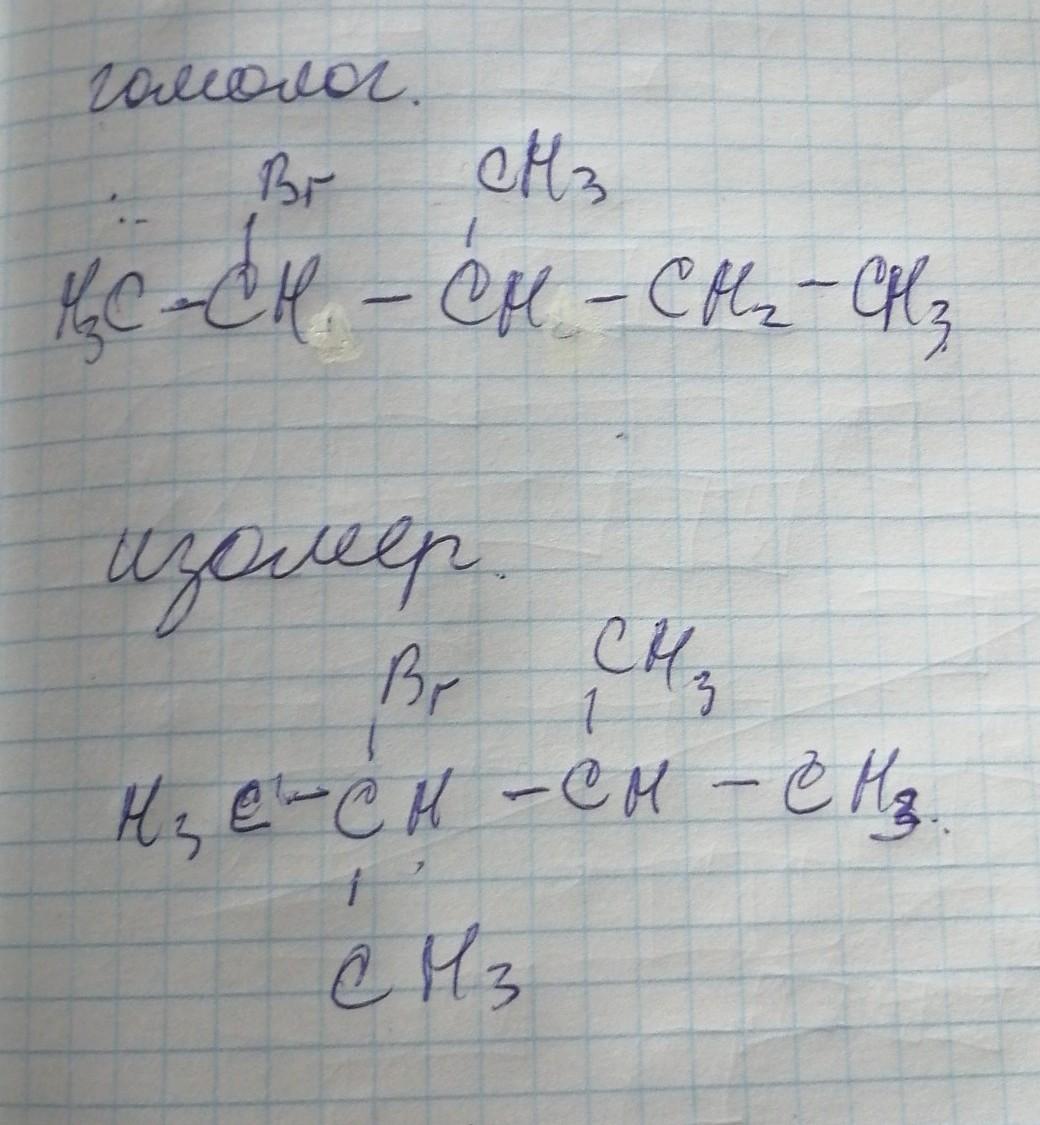 гомолог.
Br CH3
H3C - CH - CH - CH2 - CH3
изомер.
Br CH3
H3C - CH - CH - CH3.
CH3